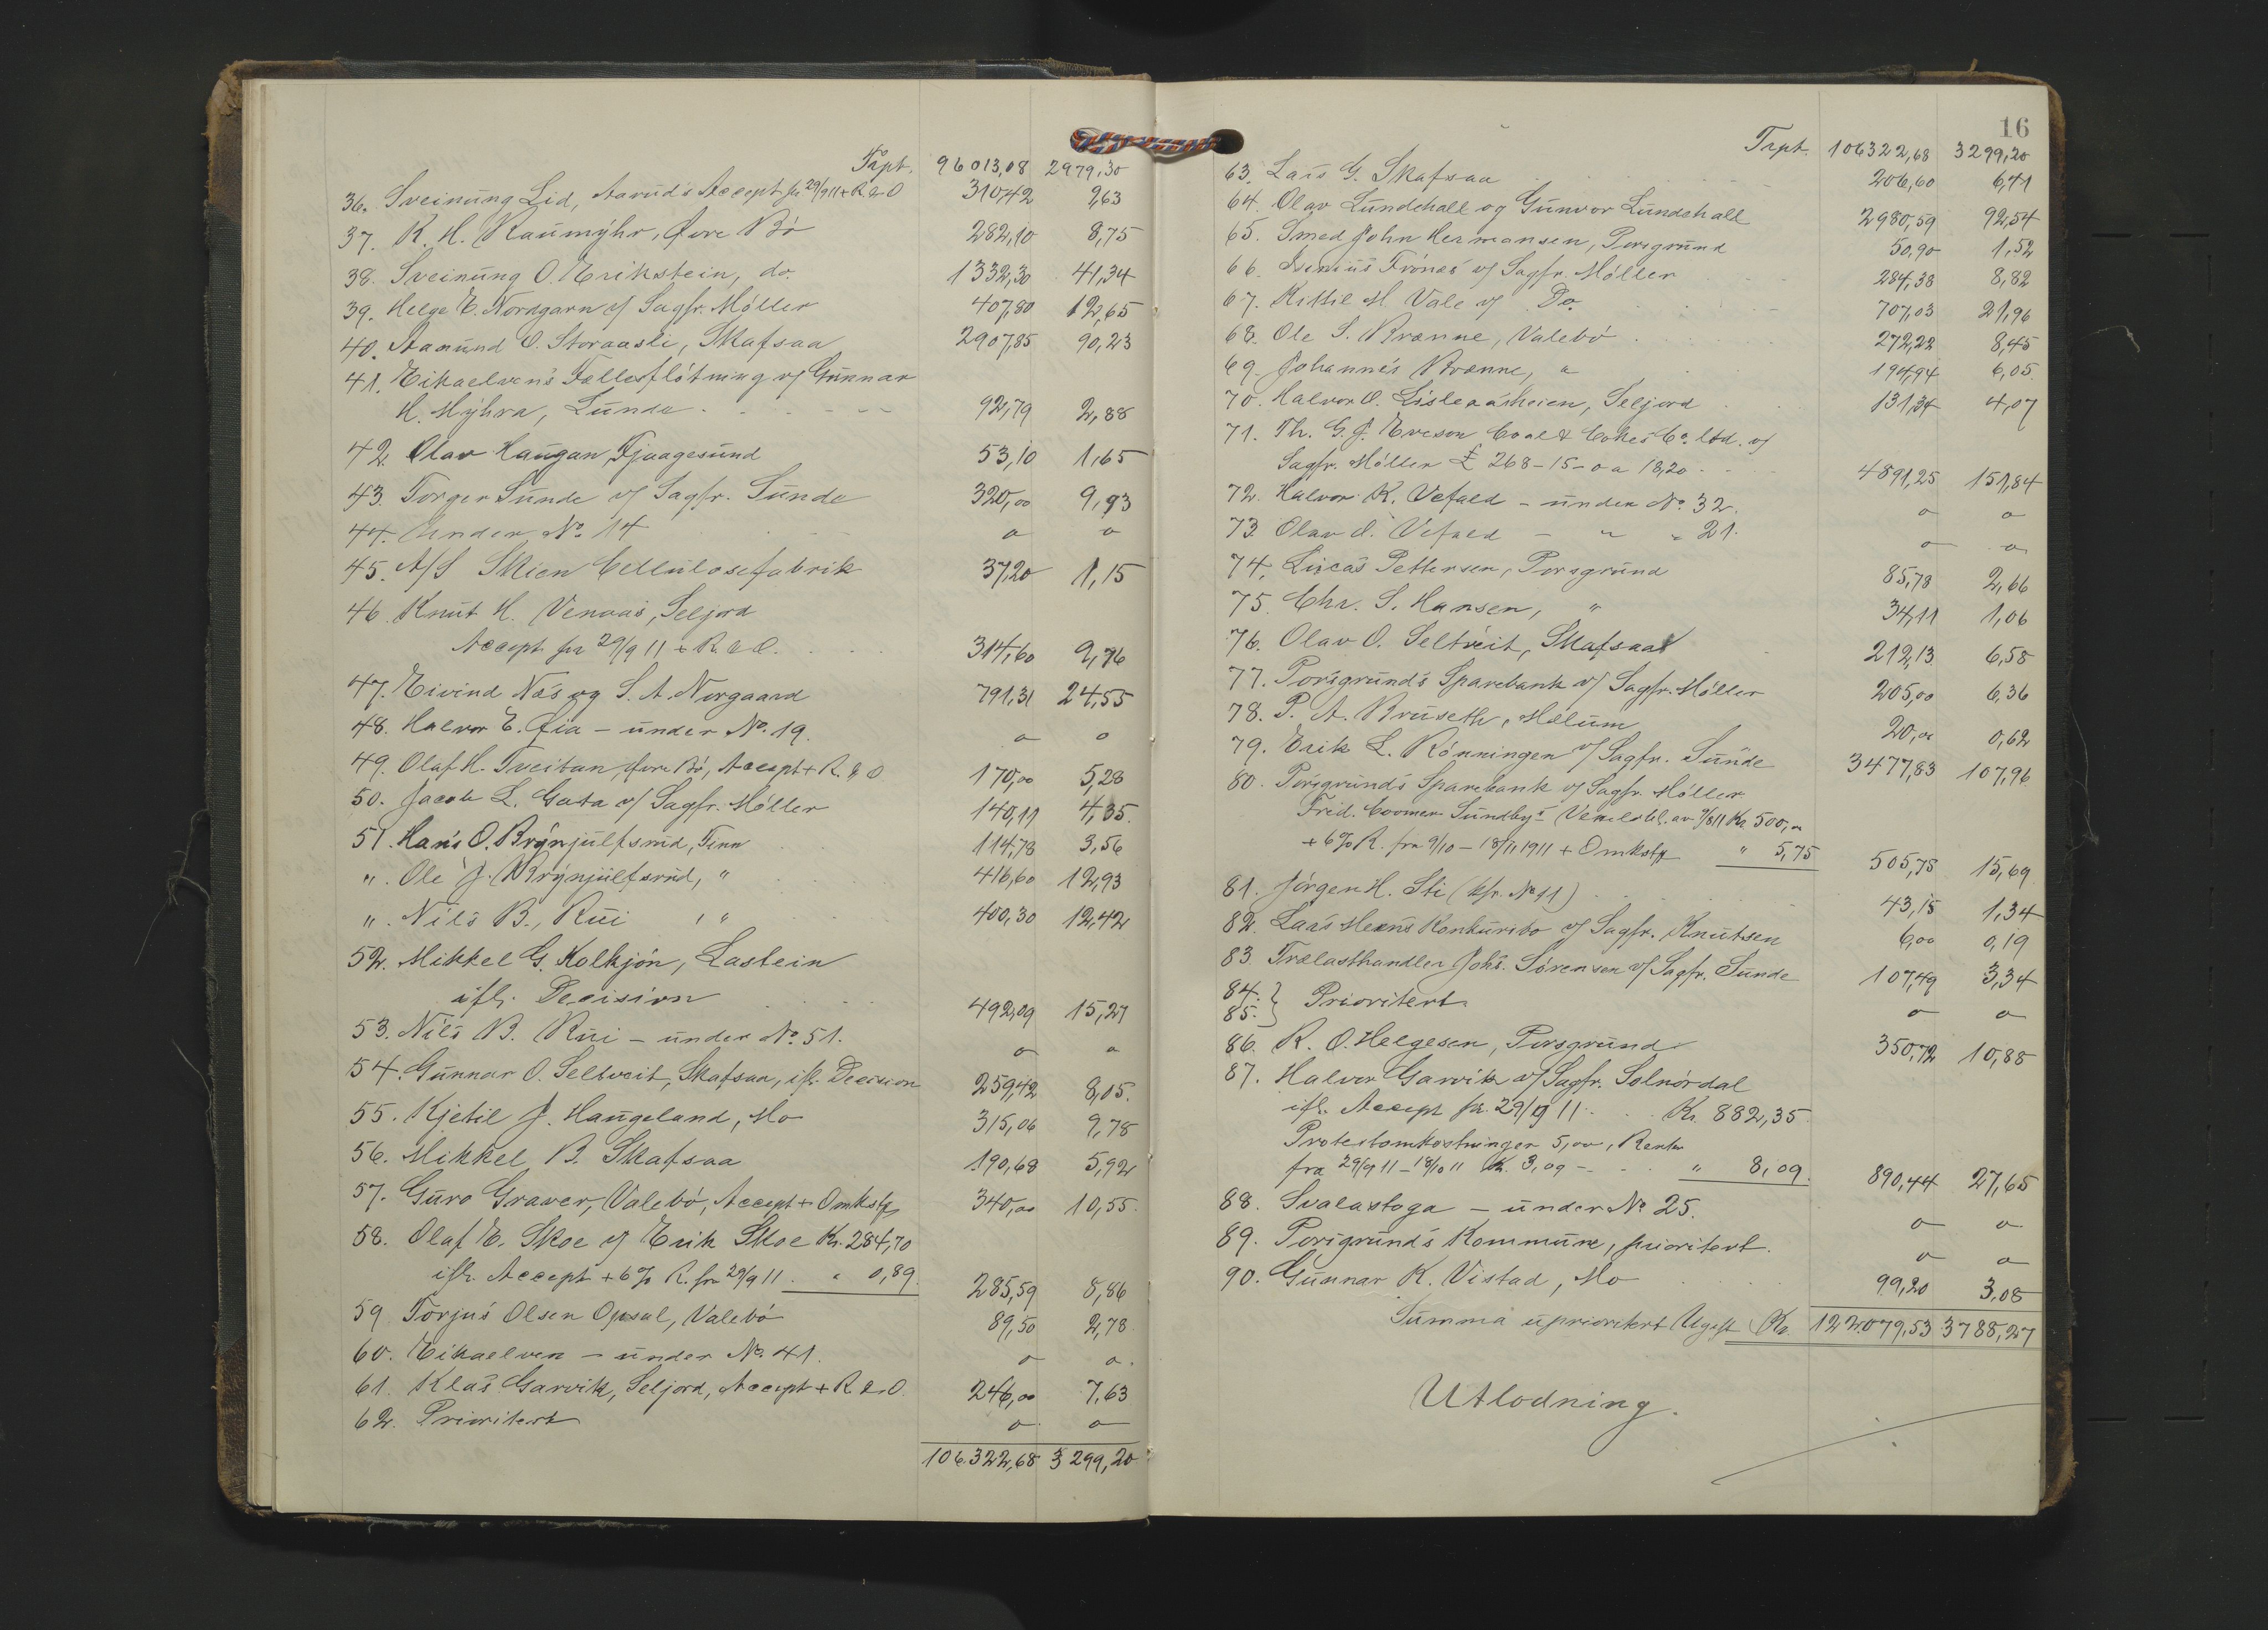 Trpt. 96013,08 2979,30
36. Sveinung Lid, Aarud's Accept fra 29/9 11 + R & O 310,42 9,63
37. K. H. Raumyhr, Øvre Bö 282,10 8,75
38. Sveinung O. Erikstein, do. 1332,30 41,34
39. Helge E. Norsgarn v/ Sagfr. Möller 407,80 12,65
40. Aamund O. Storaasli, Skafsaa 2907,85 90,23
41. Eikaelven's Fællesflötning v/ Gunnar
H. Myhra, Lunde 92,79 2,88
42. Olav Haugan, Fjaagesund 53,10 1,65
43. Torger Sunde v/ Sagfr. Sunde 320,00 9,93
44. Under No. 14 o o
45. A/S Skien Cellulosefabrik 37,20 1,15
46. Knut H. Venaas, Seljord
Accept fra 29/9 11 + R. & O. 314,60 9,76
47. Eivind Næs og S. A. Norgaard 791,31 24,55
48. Halvor E. Øia – under No. 19. o o
49. Olaf H. Tveitan, Øvre Bö, Accept + R. & O. 170,00 5,28
50. Jacob L. Gata v/ Sagfr. Möller 140,11 4,35.
51. Hans O. Brynjulfsrud, Tinn 114,78 3,56
". Ole J. Brynjulfsrud, " 416,60 12,93
". Nils B. Rui , " 400,30 12,42
52. Mikkel G. Kolkjön, Lastein
ifl. Decision 492,09 15,27
53. Nils B. Rui – under No. 51. o o
54. Gunnar O. Seltveit, Skafsaa, ifl. Decision 259,42 8,05.
55. Kjetil J. Haugeland, Mo 315,06 9,78
56. Mikkel B. Skafsaa 190,68 5,92
57. Guro Graver, Valebö, Accept + Omkstg 340,00 10,55.
58. Olaf E. Skoe v/ Erik Skoe Kr. 284,70
ifl. Accept + 6% R. fra 29/9 11. " 0,89. 285,59 8,86
59. Torjus Olsen Opsal, Valebö 89,50 2,78
60. Eikaelven – under No. 41. o o.
61. Klas Garvik, Seljord, Accept + R. & O. 246,00 7,63
62. Prioritert o o
106.322,68 3299,20
16
Trpt. 106322,68 3299,20
63. Lars G. Skafsaa 206,60 6,41
64. Olav Lundehall og Gunvor Lundehall 2980,59 92,54
65. Smed John Hermansen, Porsgrund 50,90 1,52
66. Frönes v/ Sagfr. Möller 284,38 8,82
67. Kittil M Vale v/ Do. 707,03 21,96
68. Ole S. Brænne, Valebö 272,22 8,45
69. Johannes Brænne, " 194,94 6,05.
70. Halvor O. Lisleaasheien, Seljord 131,34 4,07
71. Th. G. J. Eveson Coal & Cokes Co. ltd. v/
Sagfr. Möller £ 268-15-0 a 18,20 4891,25 151,84
72. Halvor K. Vefald – under No. 32. o o
73. Olav O. Vefald – " " 21. o o
74. Lucas Pettersen, Porsgrund 85,78 2,66
75. Chr. S. Hansen, " 34,11 1,06
76. Olav O. Seltveit, Skafsaa 212,13 6,58
77. Porsgrund's Sparebank v/ Sagfr. Möller 205,00 6,36
78. P. A. Bruseth, Mælum 20,00 0,62
79. Erik L. Rönningen v/ Sagfr. Sunde 3477,83 107,96
80. Porsgrund's Sparebank v/ Sagfr. Möller
Fred. Coomen Sundby's Veksel bl. av 9/8 11 Kr. 500,00
+ 6% R. fra 9/10 – 18/11 1911 + Omkstg " 5,75 505,75 15,69
81. Jörgen H. Sti (kfr. No 11) 43,15 1,34
82. Laas Meens Konkursbo v/ Sagfr. Knutsen 6,00 0,19
83. Trælasthandler Johs. Sörensen v/ Sagfr. Sunde 107,49 3,34
84.
85. } Prioritert o o
86. R. O. Helgesen, Porsgrund 350,72 10,88
87. Halvor Garvik v/ Sagfr. Solnördal
ifl. Accept fra 29/9 11. Kr. 882,35
Protestomkostninger 5,00, Renter
fra 29/9 11 – 18/10 11 Kr. 3,09 – " 8,09. 890,44 27,65
88. Svalastoga – under No 25. o o
89. Porsgrund's Kommune, prioritert. o o
90. Gunnar K. Vistad, Mo 99,20 3,08
Summa uprioritert Utgift Kr. 122.079,53 3788,27
Utlodning.